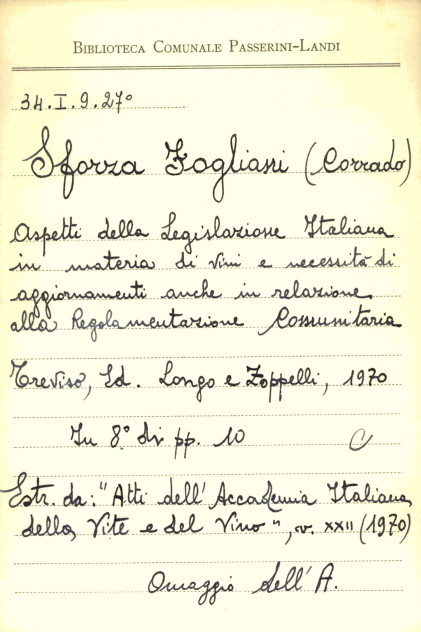 BIBLIOTECA COMUNALE PASSERINI-LANDI
34.I.9.27°
Sforza Fogliani (Corrado)
Aspetti della Legislazione Italiana
in materia di vini e necessità di
aggiornamenti anche in relazione
alla Regolamentazione Comunitaria
Treviso, Ed. Longo e Zoppelli, 1970
In 8° di pp. 10 C
Estr. da: "Atti dell'Accademia Italiana
della Vite e del Vino", v. XXII (1970)
Omaggio dell'A.